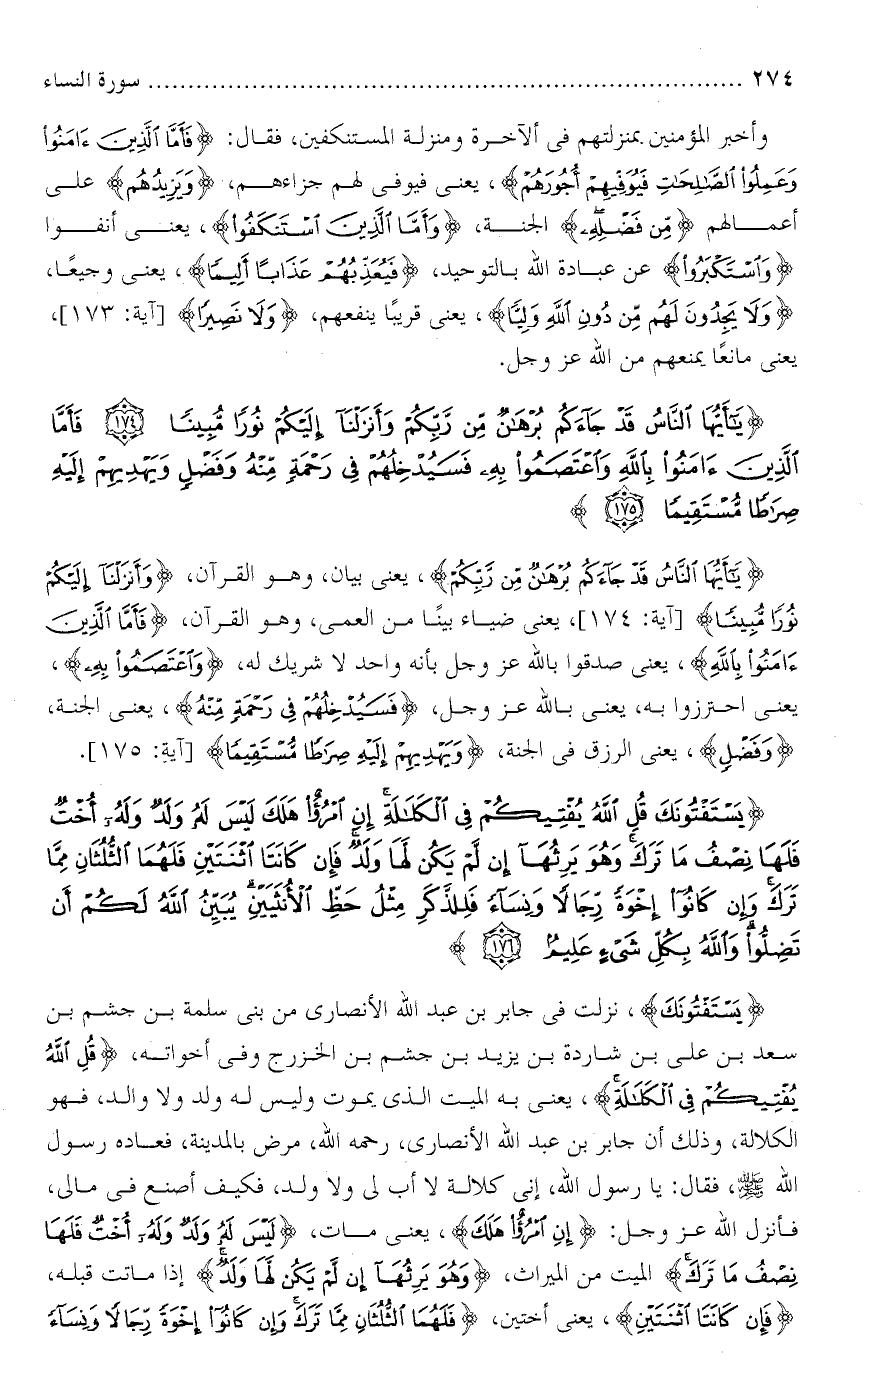 ٢٧٤ ........................................................................ سورة النساء
وأخبر المؤمنين بمنزلتهم فى الآخرة ومنزلة المستنكفين، فقال: ﴿فَأَمَّا ٱلَّذِينَ ءَامَنُوا۟
وَعَمِلُوا۟ ٱلصَّٰلِحَٰتِ فَيُوَفِّيهِمْ أُجُورَهُمْ﴾، يعنى فيوفى لهم جزاءهم، ﴿وَيَزِيدُهُم﴾ على
أعمالهم ﴿مِّن فَضْلِهِۦ﴾ الجنة، ﴿وَأَمَّا ٱلَّذِينَ ٱسْتَنكَفُوا۟﴾، يعنى أنفوا
﴿وَٱسْتَكْبَرُوا۟﴾ عن عبادة الله بالتوحيد، ﴿فَيُعَذِّبُهُمْ عَذَابًا أَلِيمًا﴾، يعنى وجيعًا،
﴿وَلَا يَجِدُونَ لَهُم مِّن دُونِ ٱللَّهِ وَلِيًّا﴾، يعنى قريبًا ينفعهم، ﴿وَلَا نَصِيرًا﴾ [آية: ١٧٣]،
يعنى مانعًا يمنعهم من الله عز وجل.
﴿يَٰٓأَيُّهَا ٱلنَّاسُ قَدْ جَآءَكُم بُرْهَٰنٌ مِّن رَّبِّكُمْ وَأَنزَلْنَآ إِلَيْكُمْ نُورًا مُّبِينًا ١٧٤ فَأَمَّا
ٱلَّذِينَ ءَامَنُوا۟ بِٱللَّهِ وَٱعْتَصَمُوا۟ بِهِۦ فَسَيُدْخِلُهُمْ فِى رَحْمَةٍ مِّنْهُ وَفَضْلٍ وَيَهْدِيهِمْ إِلَيْهِ
صِرَٰطًا مُّسْتَقِيمًا ١٧٥﴾
﴿يَٰٓأَيُّهَا ٱلنَّاسُ قَدْ جَآءَكُم بُرْهَٰنٌ مِّن رَّبِّكُمْ﴾، يعنى بيان، وهو القرآن، ﴿وَأَنزَلْنَآ إِلَيْكُمْ
نُورًا مُّبِينًا﴾ [آية: ١٧٤]، يعنى ضياء بينًا من العمى، وهو القرآن، ﴿فَأَمَّا ٱلَّذِينَ
ءَامَنُوا۟ بِٱللَّهِ﴾، يعنى صدقوا بالله عز وجل بأنه واحد لا شريك له، ﴿وَٱعْتَصَمُوا۟ بِهِۦ﴾،
يعنى احترزوا به، يعنى بالله عز وجل، ﴿فَسَيُدْخِلُهُمْ فِى رَحْمَةٍ مِّنْهُ﴾، يعنى الجنة،
﴿وَفَضْلٍ﴾، يعنى الرزق فى الجنة، ﴿وَيَهْدِيهِمْ إِلَيْهِ صِرَٰطًا مُّسْتَقِيمًا﴾ [آية: ١٧٥].
﴿يَسْتَفْتُونَكَ قُلِ ٱللَّهُ يُفْتِيكُمْ فِى ٱلْكَلَٰلَةِ ۚ إِنِ ٱمْرُؤٌا۟ هَلَكَ لَيْسَ لَهُۥ وَلَدٌ وَلَهُۥٓ أُخْتٌ
فَلَهَا نِصْفُ مَا تَرَكَ ۚ وَهُوَ يَرِثُهَآ إِن لَّمْ يَكُن لَّهَا وَلَدٌ ۚ فَإِن كَانَتَا ٱثْنَتَيْنِ فَلَهُمَا ٱلثُّلُثَانِ مِمَّا
تَرَكَ ۚ وَإِن كَانُوٓا۟ إِخْوَةً رِّجَالًا وَنِسَآءً فَلِلذَّكَرِ مِثْلُ حَظِّ ٱلْأُنثَيَيْنِ ۗ يُبَيِّنُ ٱللَّهُ لَكُمْ أَن
تَضِلُّوا۟ ۗ وَٱللَّهُ بِكُلِّ شَىْءٍ عَلِيمٌۢ ١٧٦﴾
﴿يَسْتَفْتُونَكَ﴾، نزلت فى جابر بن عبد الله الأنصارى من بنى سلمة بن جشم بن
سعد بن على بن شاردة بن يزيد بن جشم بن الخزرج وفى أخواته، ﴿قُلِ ٱللَّهُ
يُفْتِيكُمْ فِى ٱلْكَلَٰلَةِ ۚ﴾، يعنى به الميت الذى يموت وليس له ولد ولا والد، فهو
الكلالة، وذلك أن جابر بن عبد الله الأنصارى، رحمه الله، مرض بالمدينة، فعاده رسول
الله ﷺ، فقال: يا رسول الله، إنى كلالة لا أب لى ولا ولد، فكيف أصنع فى مالى،
فأنزل الله عز وجل: ﴿إِنِ ٱمْرُؤٌا۟ هَلَكَ﴾، يعنى مات، ﴿لَيْسَ لَهُۥ وَلَدٌ وَلَهُۥٓ أُخْتٌ فَلَهَا
نِصْفُ مَا تَرَكَ ۚ﴾ الميت من الميراث، ﴿وَهُوَ يَرِثُهَآ إِن لَّمْ يَكُن لَّهَا وَلَدٌ ۚ﴾ إذا ماتت قبله،
﴿فَإِن كَانَتَا ٱثْنَتَيْنِ﴾، يعنى أختين، ﴿فَلَهُمَا ٱلثُّلُثَانِ مِمَّا تَرَكَ ۚ وَإِن كَانُوٓا۟ إِخْوَةً رِّجَالًا وَنِسَآءً